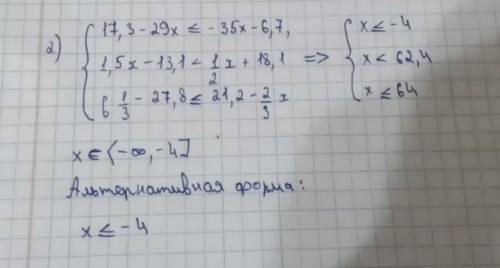 2) { 17,3 - 29x ≤ - 35x - 6,7,
1,5x - 13,1 < 1/2 x + 18,1
6 1/3 - 27,8 ≤ 21,2 - 2/3 x
=> { x ≤ -4
x < 62,4
x ≤ 64
x ∈ (-∞, -4]
Альтернативная форма:
x ≤ -4